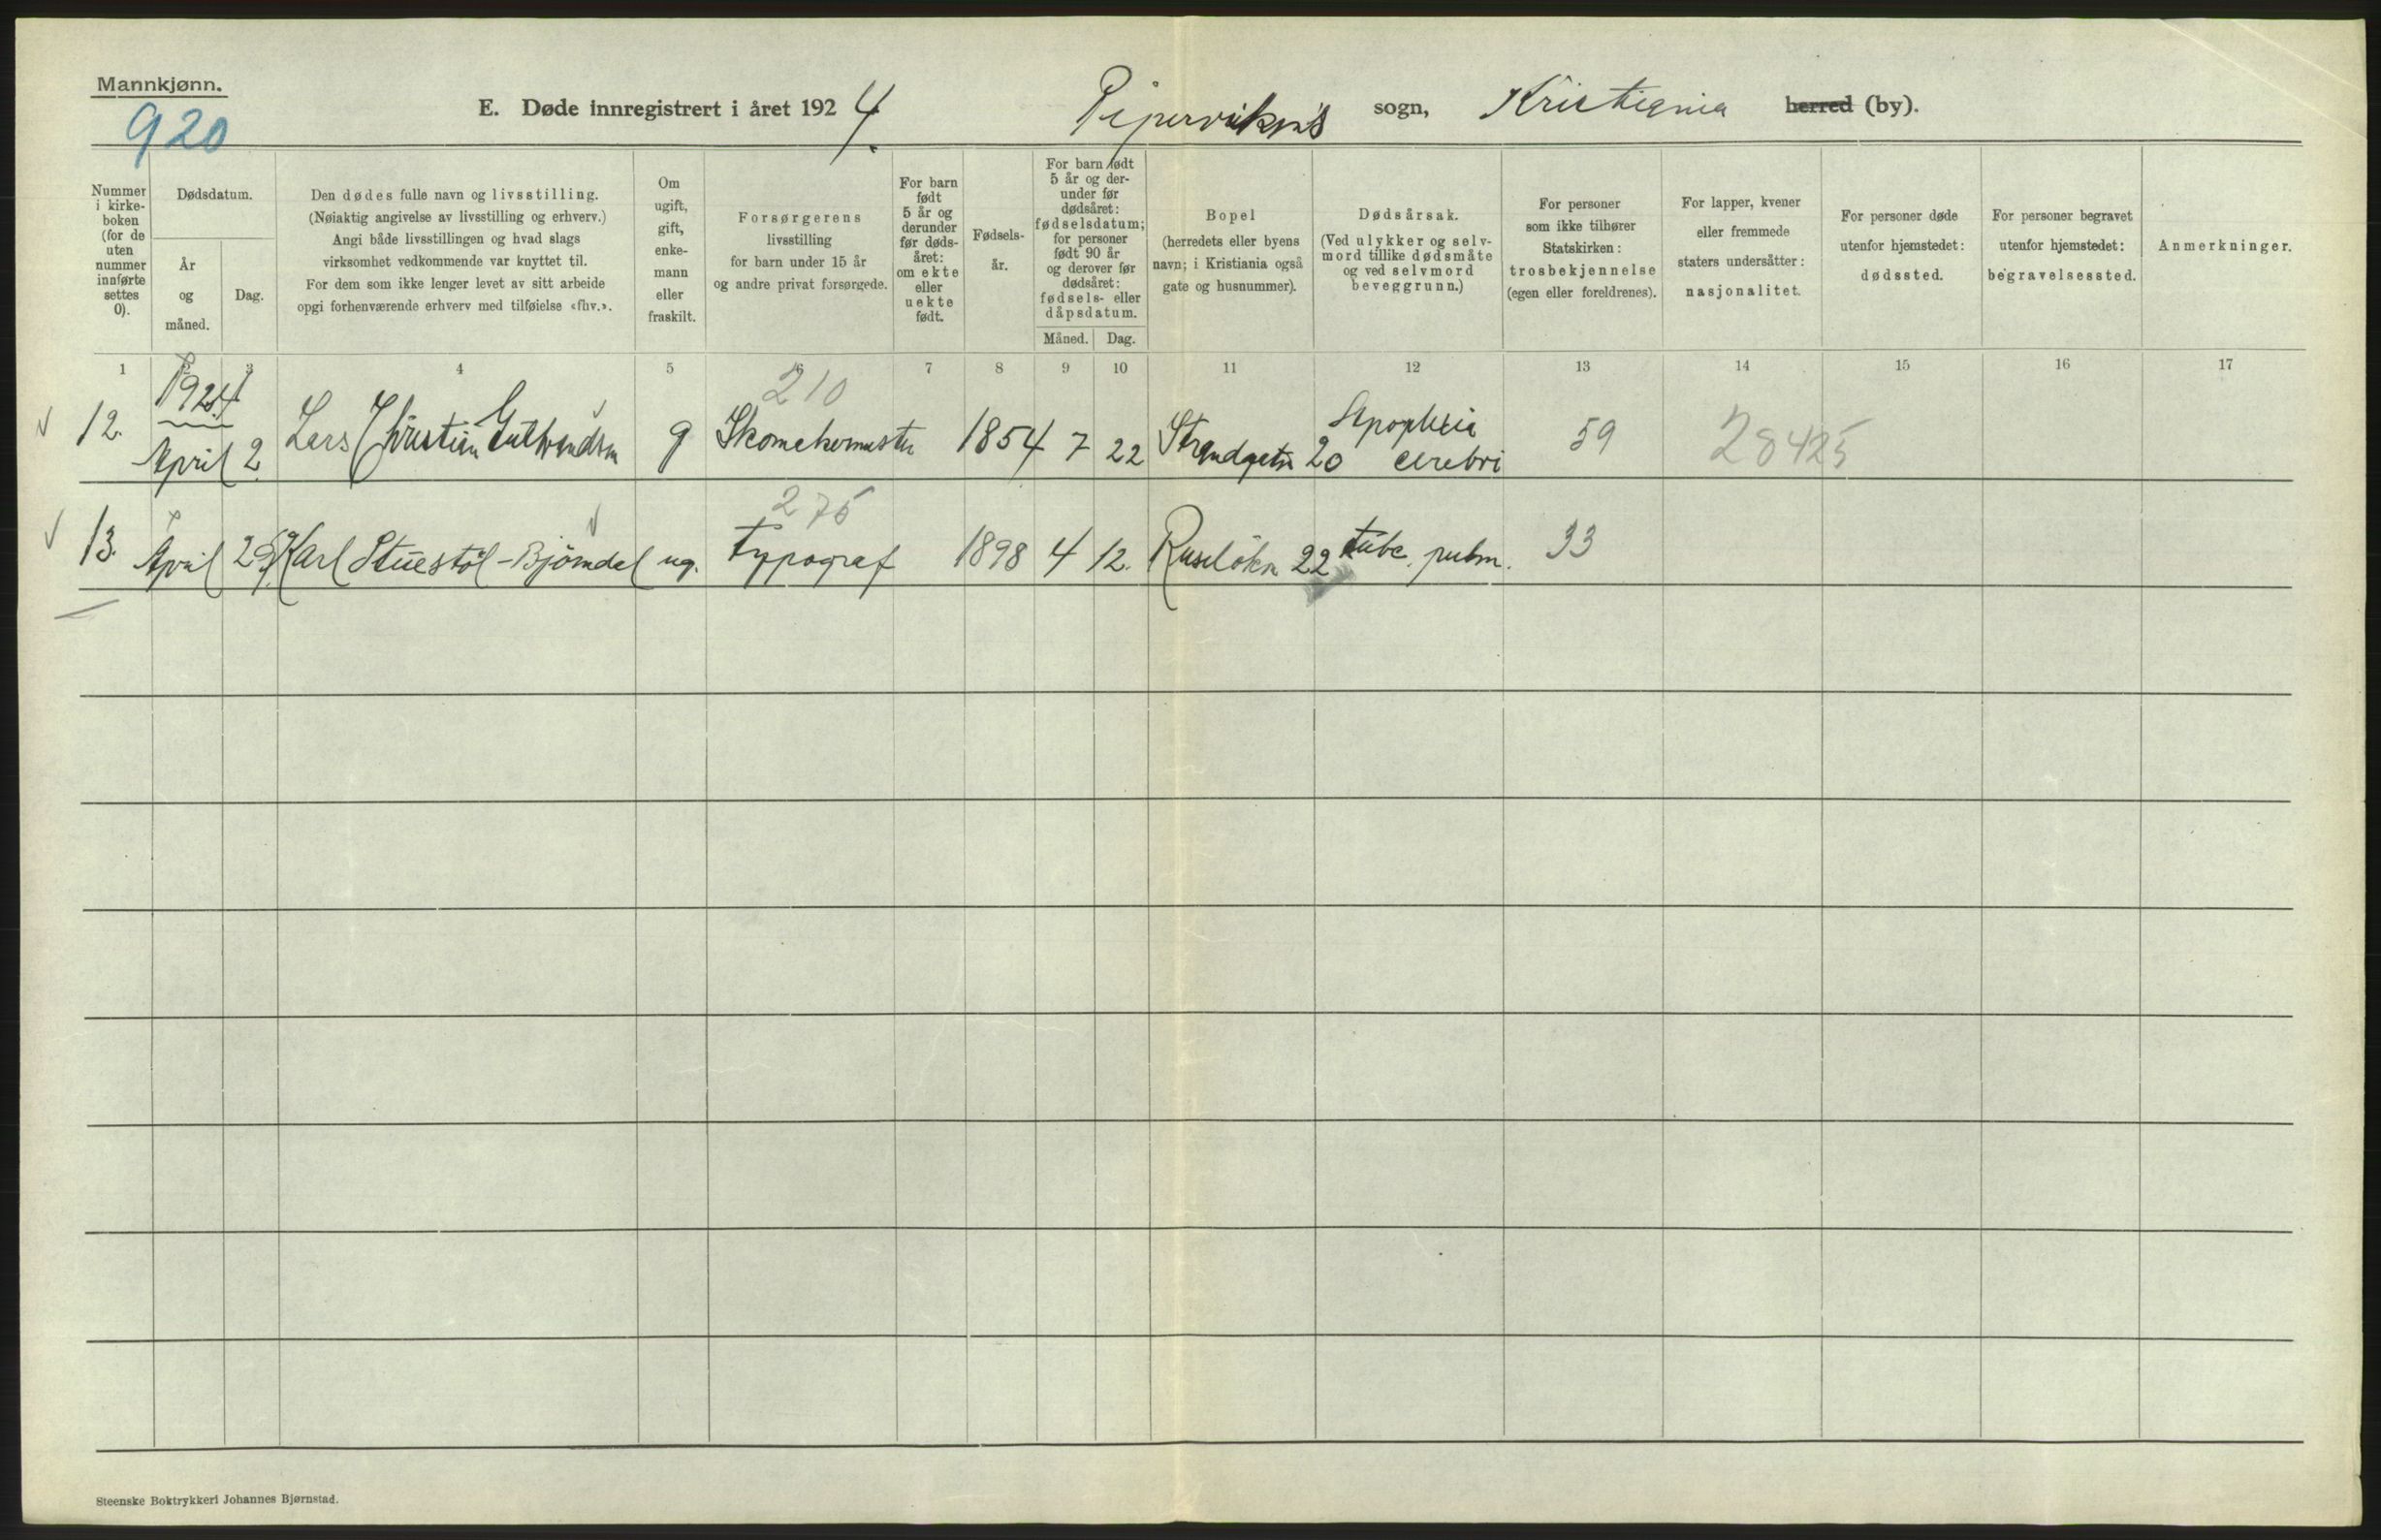 Mannkjønn.
920
E. Døde innregistrert i året 1924. Pipervikens sogn, Kristiania herred (by).
Nummer i kirke-boken (for de uten nummer innførte settes 0).
Dødsdatum.
År og måned.
Dag.
Den dødes fulle navn og livsstilling.
(Nøiaktig angivelse av livsstilling og erhverv.)
Angi både livsstillingen og hvad slags
virksomhet vedkommende var knyttet til.
For dem som ikke lenger levet av sitt arbeide
opgi forhenværende erhverv med tilføielse «fhv.».
Om ugift, gift, enke-mann eller fraskilt.
Forsørgerens
livsstilling
for barn under 15 år
og andre privat forsørgede.
For barn født 5 år og derunder før døds-året: om ekte eller uekte født.
Fødsels-år.
For barn født 5 år og der-under før dødsåret: fødselsdatum; for personer født 90 år og derover før dødsåret: fødsels- eller dåpsdatum.
Måned. Dag.
Bopel
(herredets eller byens
navn; i Kristiania også
gate og husnummer).
Dødsårsak.
(Ved ulykker og selv-
mord tillike dødsmåte
og ved selvmord
beveggrunn.)
For personer
som ikke tilhører
Statskirken:
trosbekjennelse
(egen eller foreldrenes).
For lapper, kvener
eller fremmede
staters undersåtter:
nasjonalitet.
For personer døde
utenfor hjemstedet:
dødssted.
For personer begravet
utenfor hjemstedet:
begravelsessted.
Anmerkninger.
1 3 4 5 6 7 8 9 10 11 12 13 14 15 16 17
1924 210
12. April 2 Lars Christian Gulbrandsen g Skomakermester 1854 7 22 Strandgaten 20 Apoplexia cerebri 59 28425
275
13. April 29 Karl Stuestöl-Björndal ug. Typograf 1898 4 12. Ruselökn 22 tube. pulm. 33
Steenske Boktrykkeri Johannes Bjørnstad.